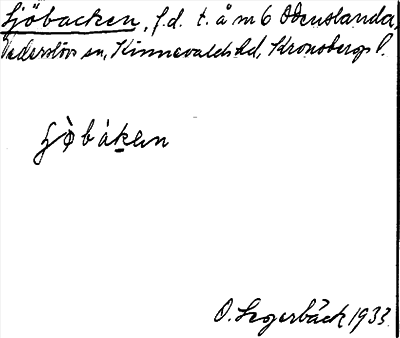 Sjöbacken, f.d. t. å m 6 Odenslanda,
Vederslövs sn, Kinnevalds hd, Kronobergs l.
ʃø̀bákɛn
O. Segerbäck 1933.